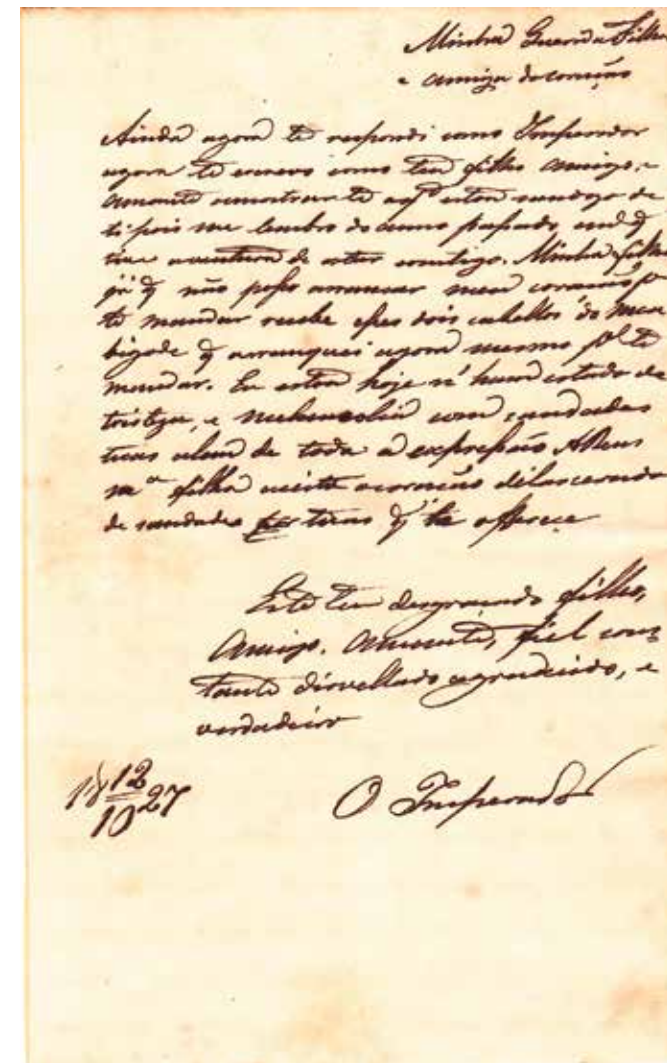 Minha Querida Filha
e amiga do coração
Ainda agora te respondi como Imperador
agora te escrevo como teu filho amigo, e
amante a mostrar te aqᵗᵒ estou saudozo de
ti pois me lembro do anno passado, em q̃
tive a ventura de estar comtigo. Minha filha
já q̃ não posso arrancar meu coração pᵃ
te mandar recebe esses dois cabellos do meu
bigode q̃ arranquei agora mesmo pᵃ te
mandar. Eu estou hoje n'hum estado de
tristeza, e melancolia com saudades
tuas alem de toda a expressão ADeus
mᵃ filha aceita o coração dilacerado
de saudades tuas q̃ te offerece
Este teu desgraçado filho,
amigo, amante, fiel cons
tante disvellado agradecido, e
verdadeiro
O Imperador
12
18 27
10